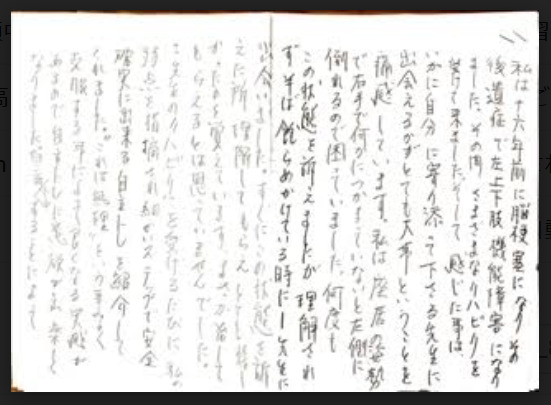 私は十六年前に脳梗塞になりその
後遺症で左上下肢機能障害になり
ました。その間、さまざまなリハビリを
受けて来ました。そして感じた事は
いかに自分に寄り添って下さる先生に
出会えるかがとても大事ということを
痛感しています。私は座居の姿勢
で右手で何かにつかまっていないと左側に
倒れるので困っていました。何度も
この状態を訴えましたが理解され
ず半ば諦めかけている時にI先生に
出会いました。すぐにこの状態を訴
えた所、理解してもらえとても嬉し
かったのを覚えています。まさか治して
もらえるとは思っていませんでした。
I先生のリハビリを受けるたびに私の
弱点を指摘され細かいステップで安全
確実に出来る自主トレを紹介して
くれました。これは無理、との事もなく
克服する毎によって良くなる実感が
あるので自主トレに意欲がわき楽しく
なりました